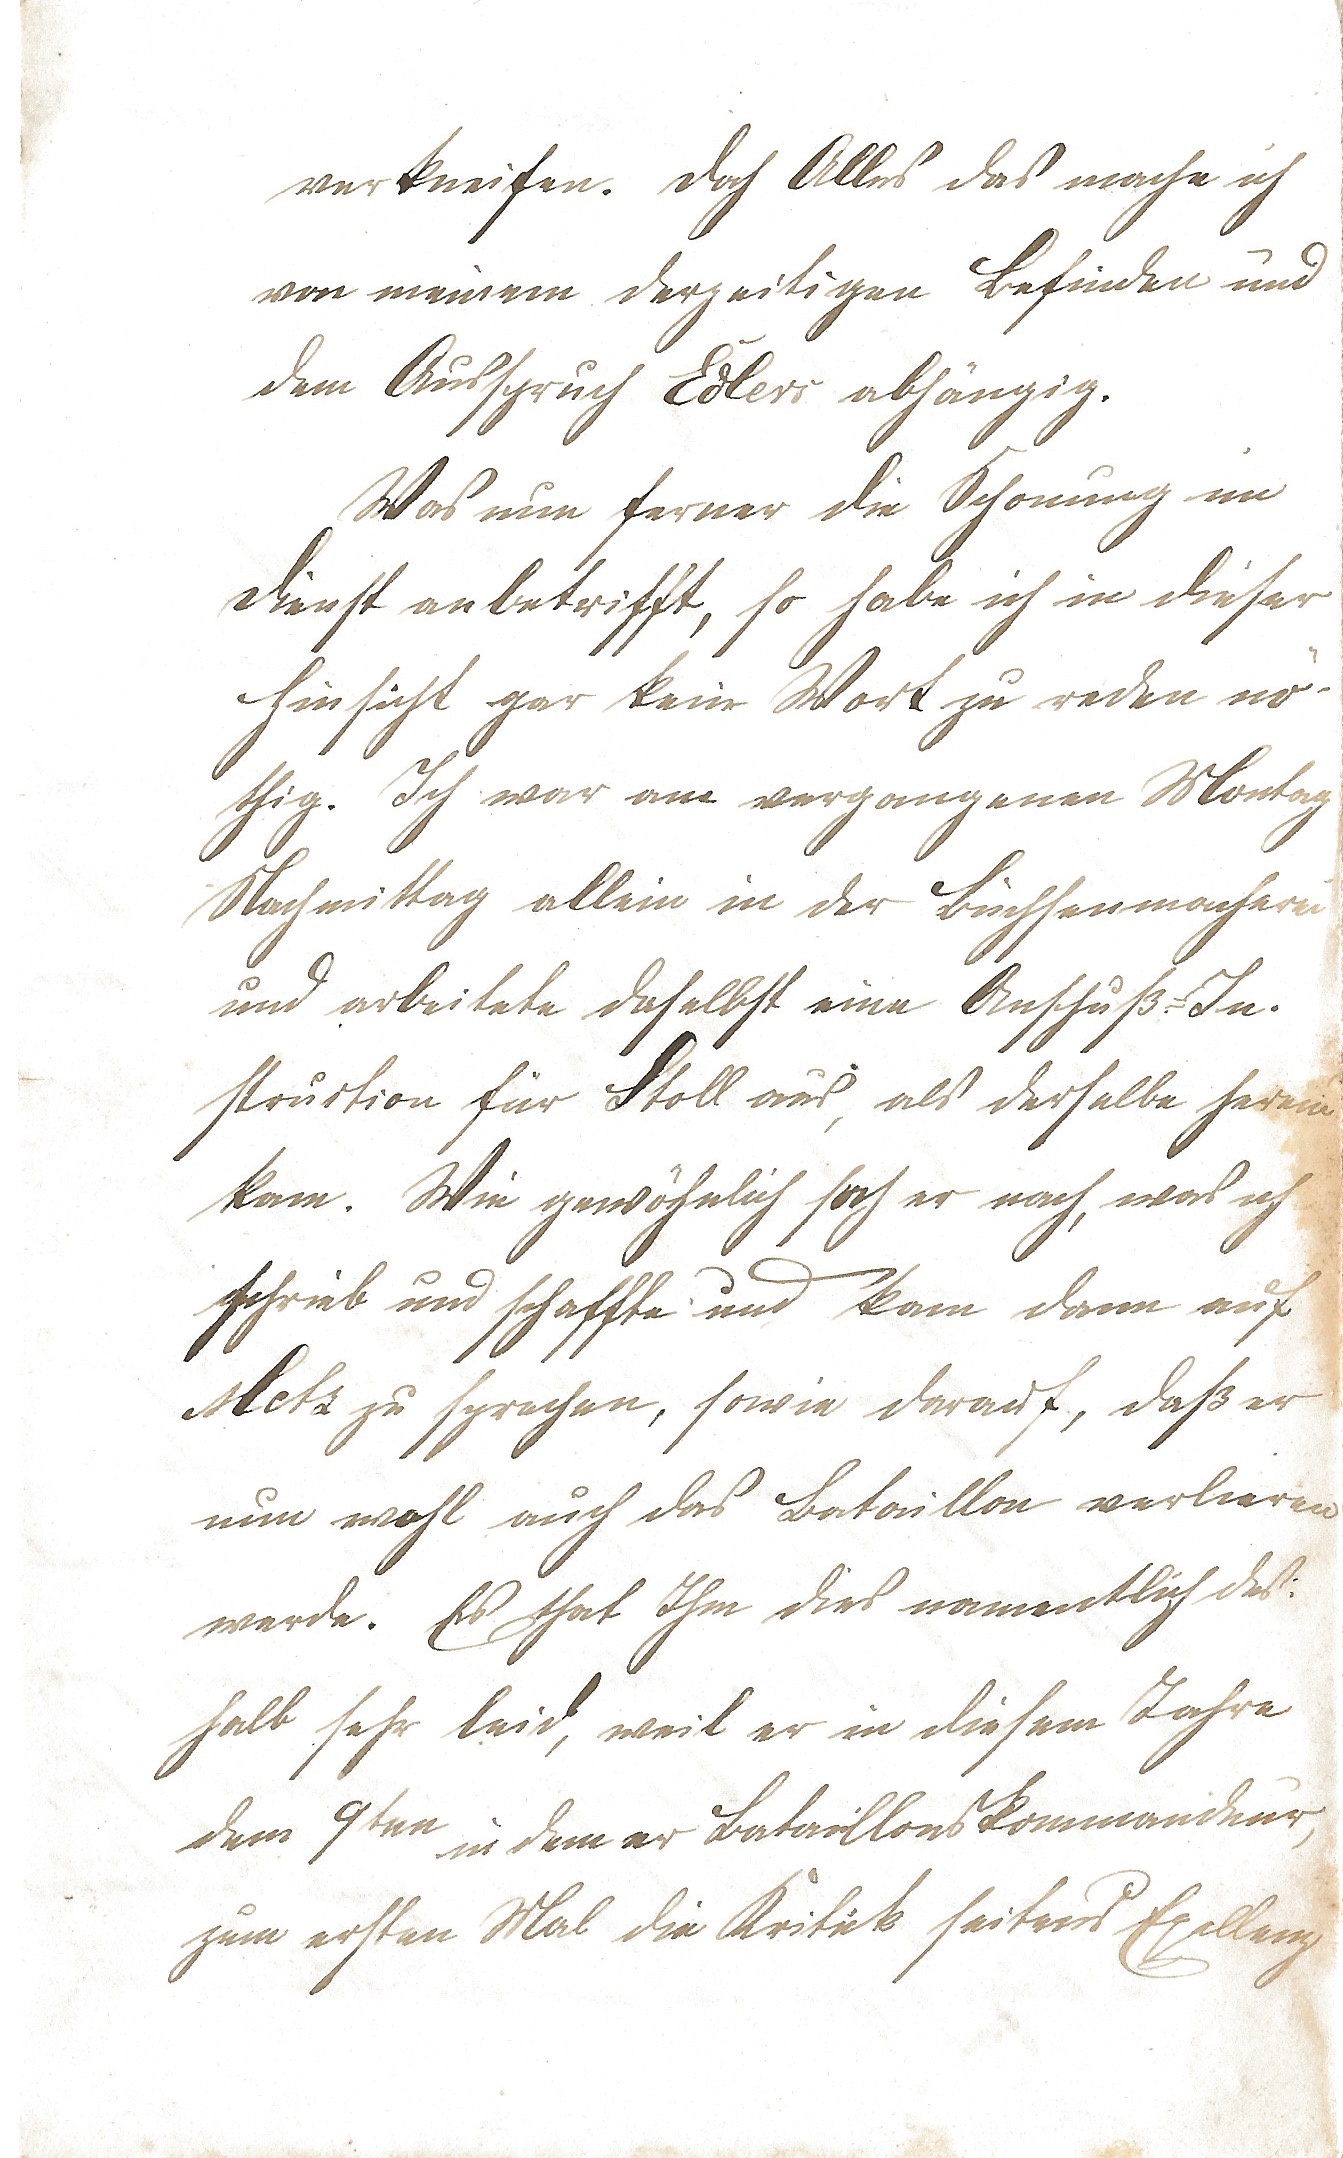 verkneifen. Doch Alles das mache ich
von meinem derzeitigen Befinden und
dem Ausspruch Edlers abhängig.
Was nun ferner die Schonung im
Dienst anbetrifft, so habe ich in dieser
Hinsicht gar kein Wort zu reden nö-
thig. Ich war am vergangenen Montag
Nachmittag allein in der Büchsenmacherei
und arbeitete daselbst eine Anschuß-In-
struction für Stoll aus, als derselbe herein
kam. Wie gewöhnlich sah er nach, was ich
schrieb und schaffte und kam dann auf
Metz zu sprechen, sowie darauf, daß er
nun wohl auch das Bataillon verlieren
werde. Es that Ihm dies namentlich des-
halb sehr leid, weil er in diesem Jahre
dem 9ten in dem er Bataillonskommandeur,
zum ersten Mal die Kritik seitens Exellenz